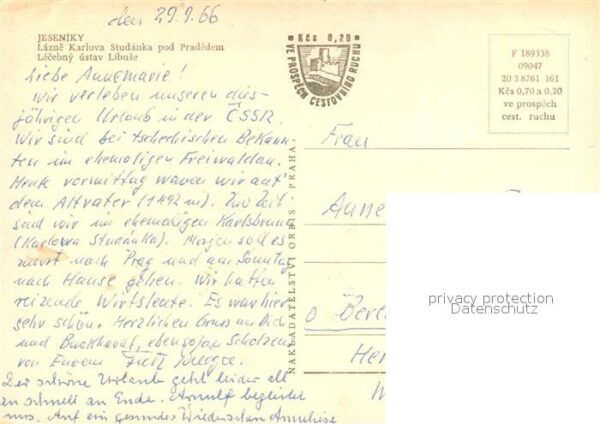 den 29.9.66
JESENÍKY
Lázně Karlova Studánka pod Pradědem
Léčebný ústav Libuše
Liebe Annemarie!
Wir verleben unseren dies-
jährigen Urlaub in der ČSSR.
Wir sind bei tschechischen Bekann-
ten im ehemaligen Freiwaldau.
Heute vormittag waren wir auf
dem Altvater (1492 m). Zur Zeit
sind wir im ehemaligen Karlsbrunn
(Karlova Studánka). Morgen soll es
zuerst nach Prag und am Sonntag
nach Hause gehen. Wir hatten
reizende Wirtsleute. Es war hier
sehr schön. Herzlichen Gruss an Dich
und Burkhard, ebenso an Scholzens
von Eurem Fritz
Der schöne Urlaub geht leider all
zu schnell an Ende. Arnulf begleitet
uns. Auf ein gesundes Wiedersehen Anneliese
Kčs 0,20
VE PROSPĚCH CESTOVNÍHO RUCHU
F 189338
09047
20 3 8761 161
Kčs 0,70 a 0,20
ve prospěch
cest. ruchu
NAKLADATELSTVÍ ORBIS · PRAHA
Frau
Anne
o Berl
He
privacy protection
Datenschutz